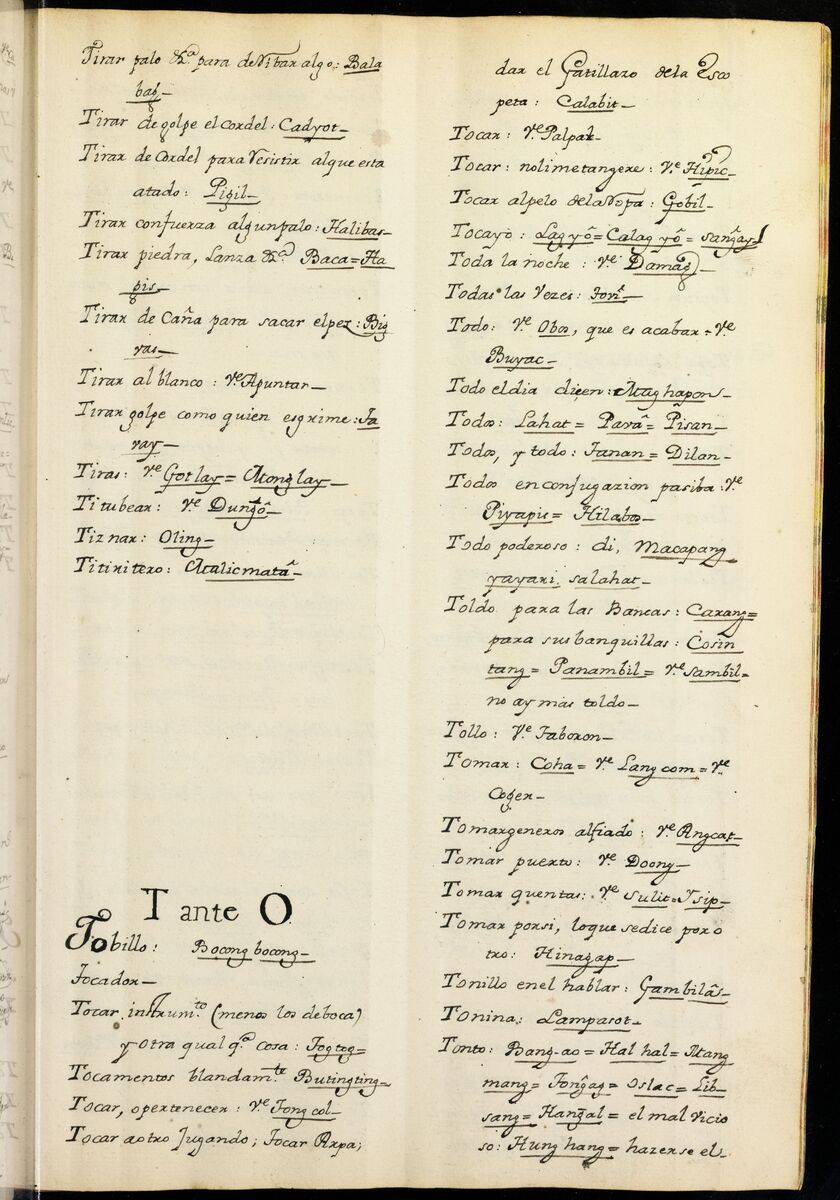 Tirar palo &ª para deribar algo: Bala
bag–
Tirar de golpe el cordel: Cadyot–
Tirar de Cordel para resistir alque esta
atado: Pigil–
Tirar confuerza algun palo: Halibas–
Tirar piedra, Lanza &ª Baca= Ha
gis–
Tirar de Caña para sacar elpez: Big
ras–
Tirar al blanco: Vᵉ Apuntar–
Tirar golpe como quien esgrime: Ta
ray–
Tiras: Vᵉ Gotlay= Monglay–
Titubear: Vᵉ Dungô–
Tiznar: Oling–
Titiritero: Malicmatâ–
T ante O
Tobillo: Bocong bocong–
Tocador–
Tocar, instrumᵗᵒ (menos los deboca)
y otra qual qª cosa: Togtog=
Tocamentos blandamᵗᵉ Butingting–
Tocar, opertenecer: Vᵉ Tongcol–
Tocar aotro Jugando; Tocar Arpa;
dar el Gatillazo dela Esco
peta: Calabit–
Tocar: Vᵉ Palpar–
Tocar: nolimetangere: Vᵉ Hipic–
Tocar alpelo dela ropa: Gobil–
Tocayo: Lagyô= Calagyô= sangay–
Toda la noche: Vᵉ Damag–
Todas las Vezes: Ton̄–
Todo: Vᵉ Obos, que es acabar= Vᵉ
Buyac–
Todo el dia dicen: Maghapon–
Todos: Lahat= Parâ= Pisan–
Todos, y todo: Tanan= Dilan–
Todos en conjugazion pasiba: Vᵉ
Piyapis= Hilabos–
Todo poderoso: di, Macapang
yayari, salahat–
Toldo para las Bancas: Carang=
para sus banquillas: Cosin
tang= Panambil= Vᵉ sambil=
no ay mas toldo–
Tollo: Vᵉ Taboron–
Tomar: Coha= Vᵉ Langcom= Vᵉ
Coger–
Tomar generos alfiado: Vᵉ Angcat–
Tomar puerto: Vᵉ Doong–
Tomar quentas: Vᵉ Sulit= Ysip–
Tomar porsi, loque sedice poro
tro: Hinagap–
Tonillo enel hablar: Gambilâs–
Tonina: Lampasot–
Tonto: Bang-ao= Hal hal= Mang
mang= Tongag= Oslac= Lib
sang= Hangal= el mal vicio
so: Hung hang= hazerse el–